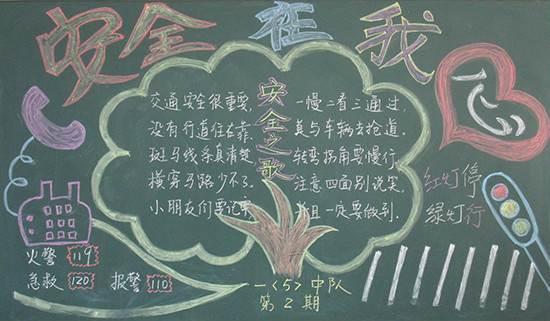 安全在我心
安全之歌
交通安全很重要,
没有行道往右靠,
斑马线条真清楚
横穿马路少不了.
小朋友们要记牢
一慢二看三通过,
莫与车辆去抢道.
转弯拐角要慢行.
注意四面别说笑
并且一定要做到.
红灯停
绿灯行
火警 119
急救 120 报警 110
一<5>中队
第2期